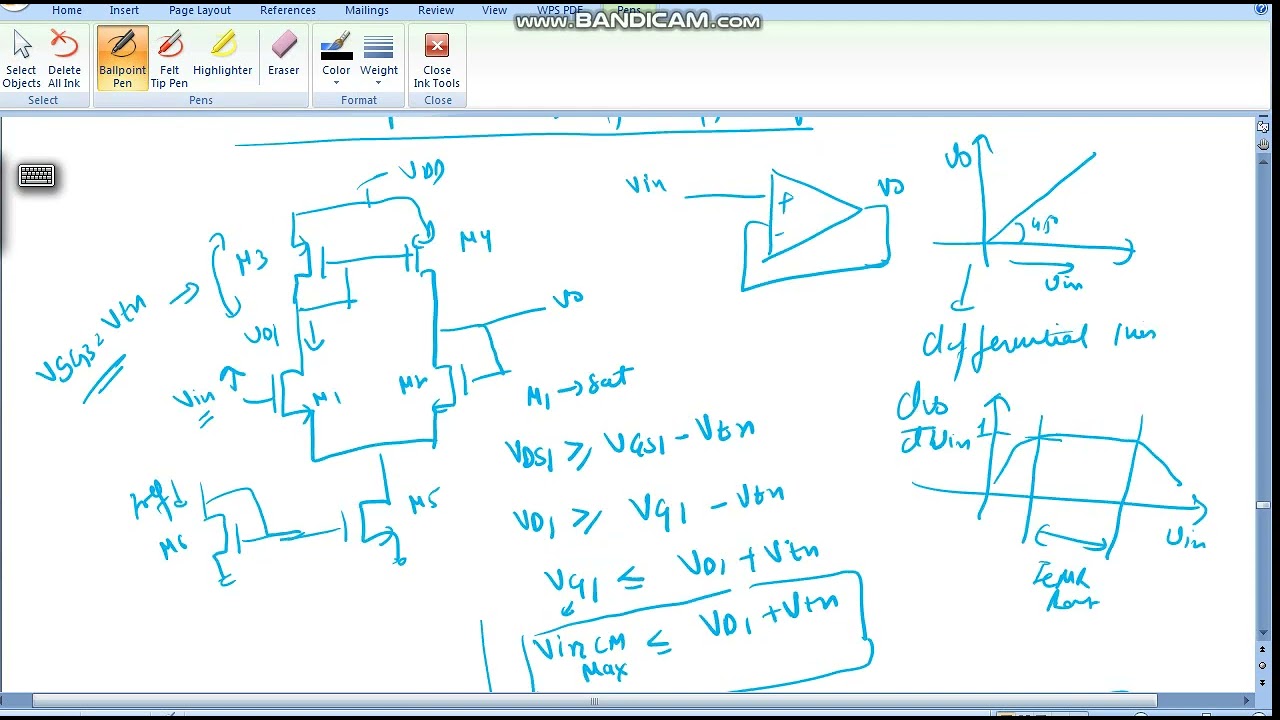 Home Insert Page Layout References Mailings Review View WPS PDF Pens
www.BANDICAM.com
Select Objects
Delete All Ink
Ballpoint Pen
Felt Tip Pen
Highlighter
Eraser
Color
Weight
Close Ink Tools
Select
Pens
Format
Close
VDD
M3
M4
VSG3 = Vtn
VO1
VO
Vin
M1
M2
M5
M6
Vin
+
-
VO
VO
45
Vin
differential
M1 → sat
VDS1 ≥ VGS1 - Vtn
VD1 ≥ VG1 - Vtn
VG1 ≤ VD1 + Vtn
Vin CM ≤ VD1 + Vtn
Max
dVo
dVin
1
Vin
ICMR